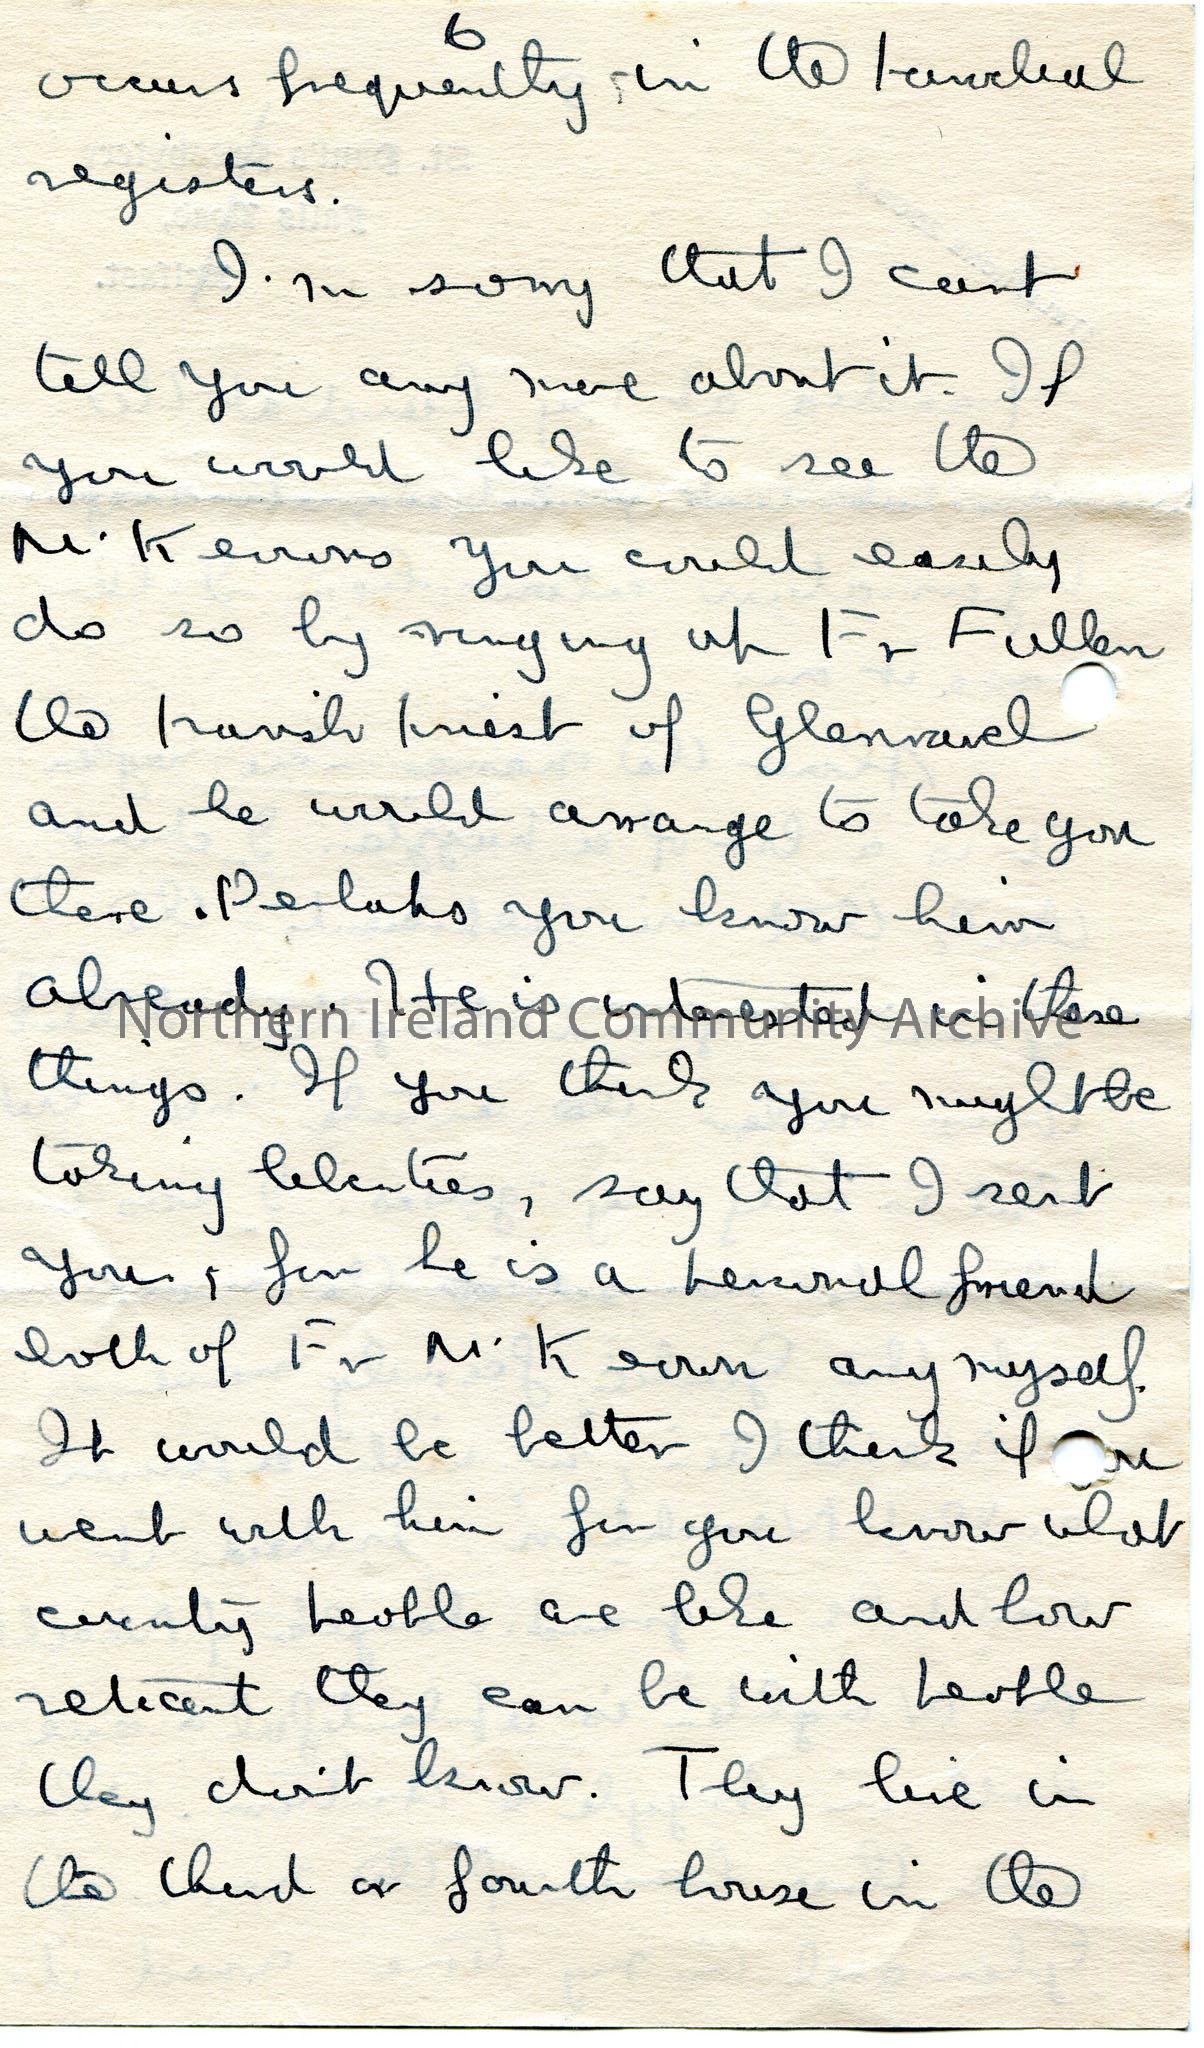 6
occurs frequently, in the parochial
registers.
I'm sorry that I cant
tell you any more about it. If
you would like to see the
McKeowns you could easily
do so by ringing up Fr Fullen
the parish priest of Glenravel
and he would arrange to take you
there. Perhaps you know him
already. He is interested in these
things. If you think you might be
taking liberties, say that I sent
you, for he is a personal friend
both of Fr McKeown any myself.
It would be better I think if you
went with him for you know what
country people are like and how
reticent they can be with people
they don't know. They live in
the third or fourth house in the
Northern Ireland Community Archive